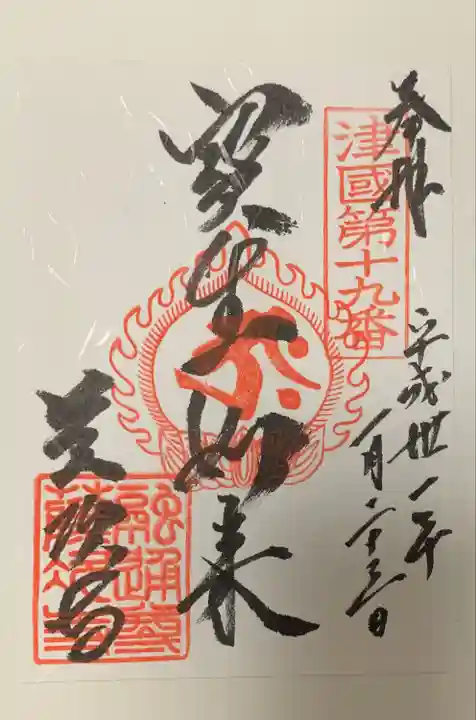 奉拝
津國第十九番
平成丗一年
一月二十三日
寳生如来
融通